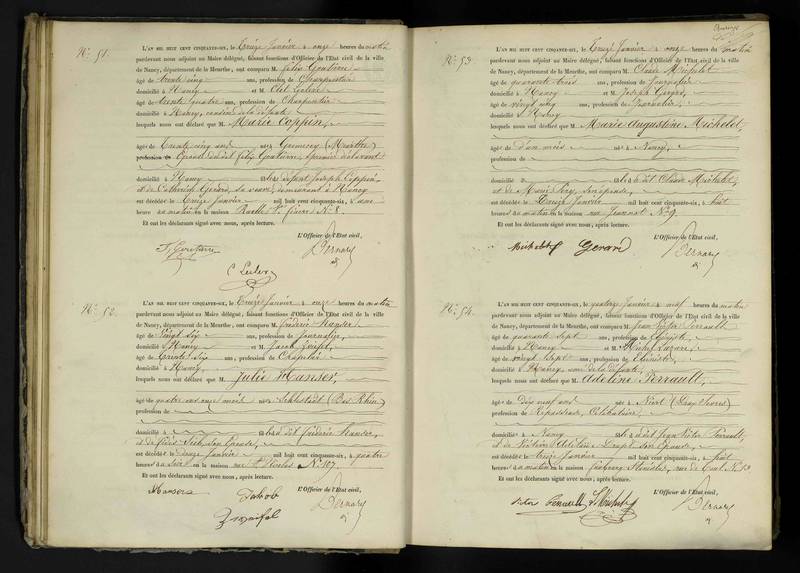 N° 51.
L'AN MIL HUIT CENT CINQUANTE-SIX, le Treize Janvier à onze heures du matin
pardevant nous adjoint au Maire délégué, faisant fonctions d'Officier de l'Etat civil de la ville
de Nancy, département de la Meurthe, ont comparu M. Félix Gouturier
âgé de trente cinq ans, profession de Charpentier
domicilié à Nancy et M.
âgé de trente quatre ans, profession de Charpentier
domicilié à Nancy, de la défunte
lesquels nous ont déclaré que M. Marie Coppin,
âgée de Trente cinq ans née à (Meurthe)
profession de Epouse du dit Félix premier déclarant
domicilié à Nancy fille de défunt Joseph Coppin
et de Catherine Gérard, sa veuve, demeurant à Nancy
est décédée le Treize Janvier mil huit cent cinquante-six, à une
heure du matin en la maison Ruelle N° 8.
Et ont les déclarants signé avec nous, après lecture.
L'Officier de l'Etat civil,
Bernard
N° 52.
L'AN MIL HUIT CENT CINQUANTE-SIX, le Treize Janvier à onze heures du matin
pardevant nous adjoint au Maire délégué, faisant fonctions d'Officier de l'Etat civil de la ville
de Nancy, département de la Meurthe, ont comparu M. Frédéric Hanser
âgé de Vingt six ans, profession de Journalier
domicilié à Nancy et M. Jacob
âgé de Trente six ans, profession de Chapelier
domicilié à Nancy,
lesquels nous ont déclaré que M. Julie Hanser,
âgée de quatre ans onze mois née à Schlestadt (Bas Rhin)
profession de
domicilié à fille du dit Frédéric Hanser,
et de son Epouse,
est décédée le douze Janvier mil huit cent cinquante-six, à quatre
heures du soir en la maison rue St Nicolas N° 107.
Et ont les déclarants signé avec nous, après lecture.
L'Officier de l'Etat civil,
Jakob
Bernard
N° 53
L'AN MIL HUIT CENT CINQUANTE-SIX, le Treize Janvier à onze heures du matin
pardevant nous adjoint au Maire délégué, faisant fonctions d'Officier de l'Etat civil de la ville
de Nancy, département de la Meurthe, ont comparu M. Claude Michelet
âgé de quarante trois ans, profession de Journalier
domicilié à Nancy et M. Joseph Gérard,
âgé de vingt cinq ans, profession de Journalier,
domicilié à Nancy
lesquels nous ont déclaré que M. Marie Augustine Michelet,
âgée de d'un mois née à Nancy,
profession de
domicilié à fille du dit Claude Michelet,
et de Marie son épouse,
est décédée le Treize Janvier mil huit cent cinquante-six, à huit
heures du matin en la maison rue Jeannot N° 9.
Et ont les déclarants signé avec nous, après lecture.
L'Officier de l'Etat civil,
Gerard
Bernard
N° 54.
L'AN MIL HUIT CENT CINQUANTE-SIX, le quatorze Janvier à neuf heures du matin
pardevant nous adjoint au Maire délégué, faisant fonctions d'Officier de l'Etat civil de la ville
de Nancy, département de la Meurthe, ont comparu M. Jean Victor Perrault
âgé de quarante sept ans, profession de Ebéniste,
domicilié à Nancy et M.
âgé de vingt sept ans, profession de Ebéniste,
domicilié à Nancy, ami de la défunte,
lesquels nous ont déclaré que M. Adeline Perrault,
âgée de dix neuf ans née à Niort (Deux Sèvres)
profession de Repasseuse, Célibataire,
domicilié à Nancy fille du dit Jean Victor Perrault,
et de Victoire son Epouse,
est décédée le treize Janvier mil huit cent cinquante-six, à huit
heures du matin en la maison faubourg Stanislas, rue de Toul N° 13
Et ont les déclarants signé avec nous, après lecture.
L'Officier de l'Etat civil,
Victor Perrault
Bernard